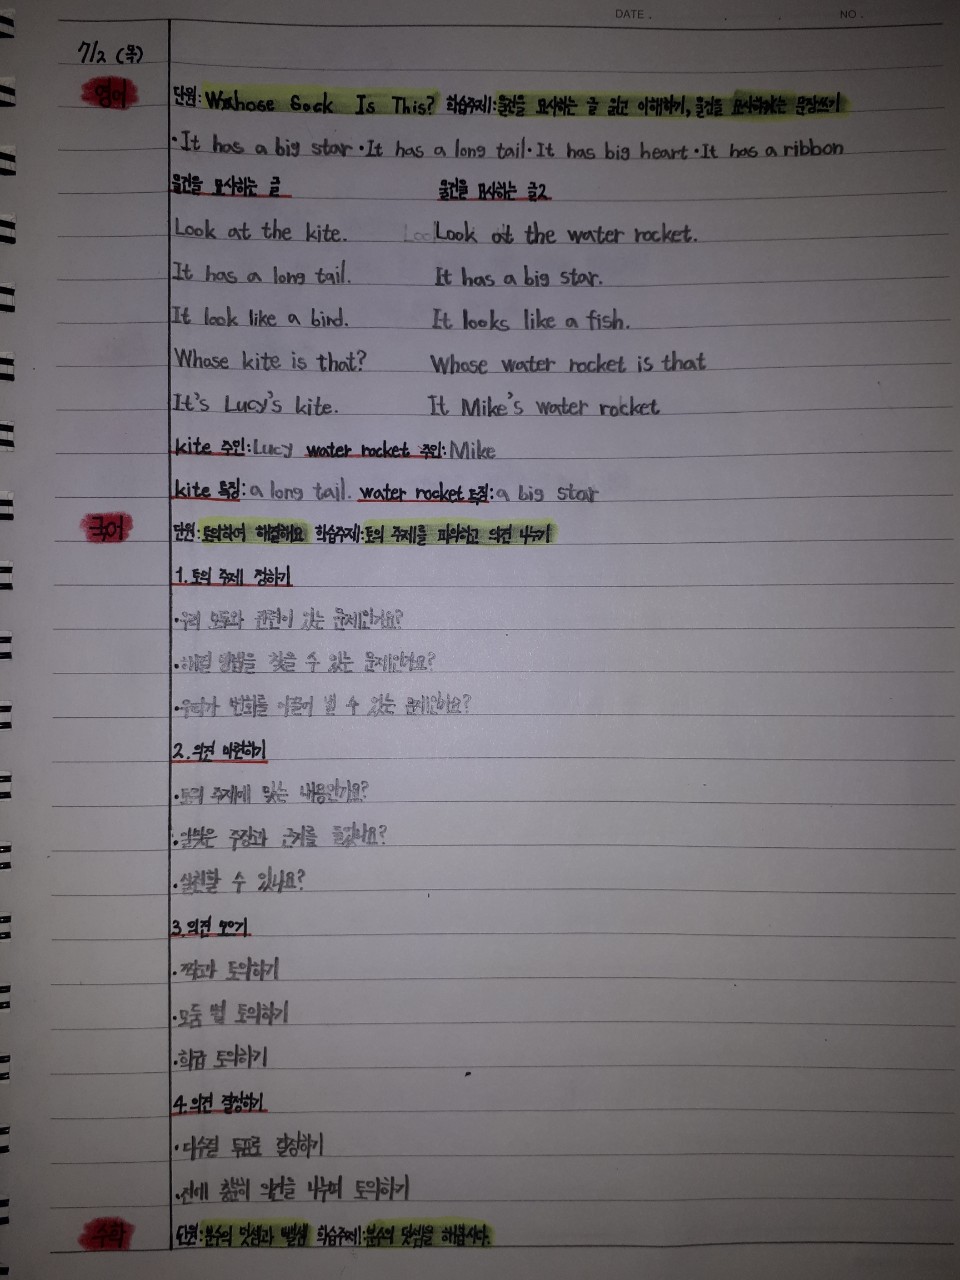 DATE . . . NO .
7/2 (목)
영어
단원: Whose Sock Is This? 학습주제: 물건을 묘사하는 글 읽고 이해하기, 물건을 묘사하는 문장쓰기
·It has a big star ·It has a long tail ·It has big heart ·It has a ribbon
물건을 묘사하는 글 물건을 묘사하는 글2
Look at the kite. Look at the water rocket.
It has a long tail. It has a big star.
It look like a bird. It looks like a fish.
Whose kite is that? Whose water rocket is that
It's Lucy's kite. It Mike's water rocket
kite 주인: Lucy water rocket 주인: Mike
kite 특징: a long tail. water rocket 특징: a big star
국어
단원: 토의하여 해결해요 학습주제: 토의 주제를 파악하고 의견 나누기
1. 토의 주제 정하기
·우리 모두와 관련이 있는 문제인가요?
·해결 방법을 찾을 수 있는 문제인가요?
·우리가 변화를 이끌어 낼 수 있는 문제인가요?
2. 의견 마련하기
·토의 주제에 맞는 내용인가요?
·알맞은 주장과 근거를 들었나요?
·실천할 수 있나요?
3. 의견 모으기
·짝과 토의하기
·모둠 별 토의하기
·학급 토의하기
4. 의견 결정하기
·다수결 투표로 결정하기
·전에 충분히 의견을 나누며 토의하기
수학
단원: 분수의 덧셈과 뺄셈 학습주제: 분수의 덧셈을 해봅시다.